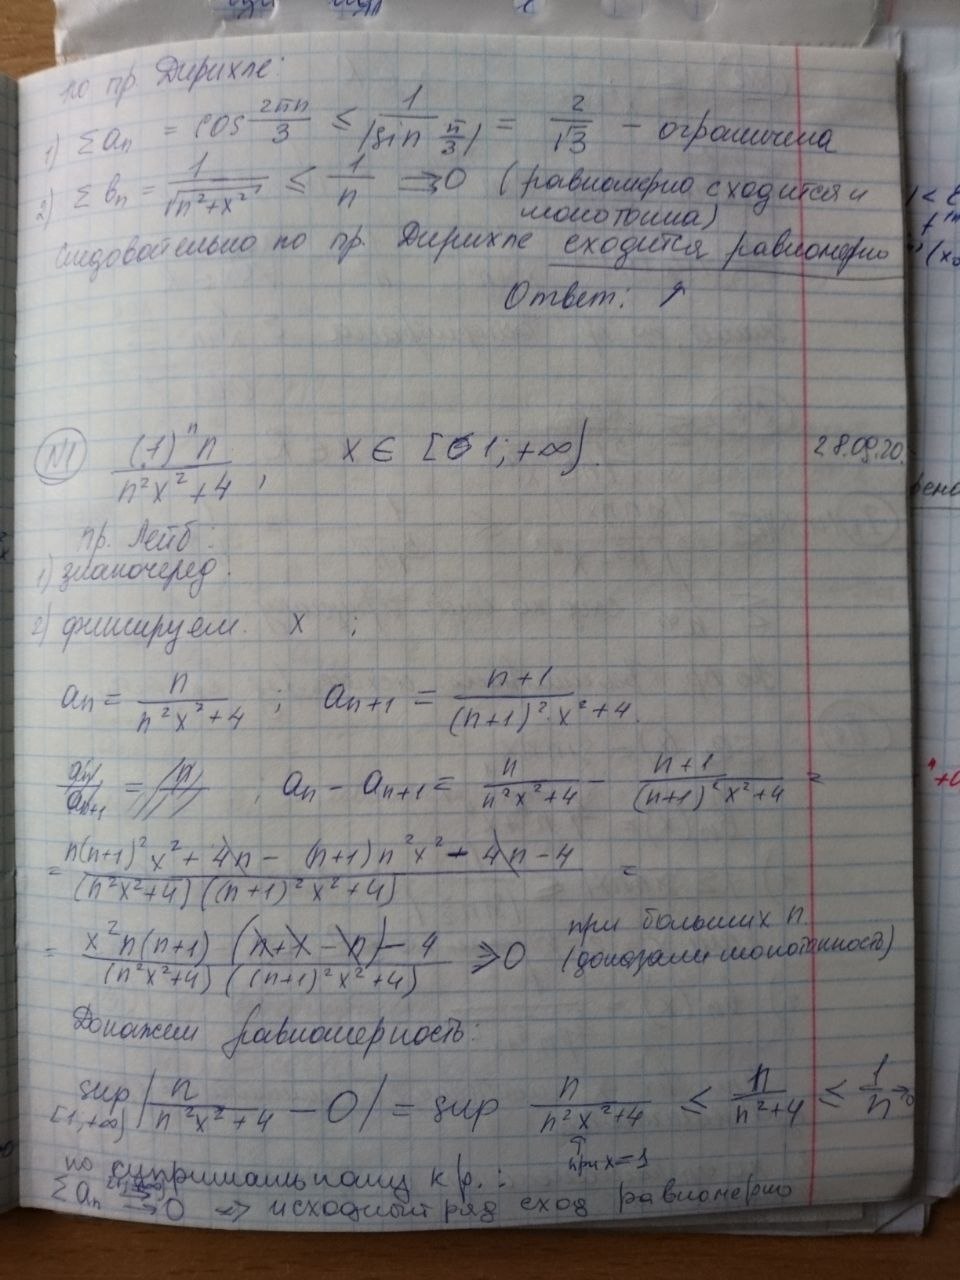 по пр. Дирихле:
1) Σ aₙ = cos 2πn/3 ≤ 1/|sin π/3| = 2/√3 – ограничена
2) Σ bₙ = 1/√(n²+x²) ≤ 1/n ⇉ 0 (равномерно сходится и
монотонна)
Следовательно по пр. Дирихле сходится равномерно
Ответ:
28.09.20.
№1 (-1)ⁿ n/(n²x²+4), x ∈ [1; +∞).
пр. Лейб:
1) знакочеред.
2) фиксируем x ;
aₙ = n/(n²x²+4) ; aₙ₊₁ = (n+1)/((n+1)²·x²+4).
; aₙ - aₙ₊₁ = n/(n²x²+4) - (n+1)/((n+1)²x²+4) =
= (n(n+1)²x² + 4n - (n+1)n²x² - 4n - 4)/((n²x²+4)((n+1)²x²+4)) =
= (x²n(n+1)(n+1-n) - 4)/((n²x²+4)((n+1)²x²+4)) ≥ 0 при больших n
(доказали монотонность)
Докажем равномерность:
sup [1,+∞) |n/(n²x²+4) - 0| = sup n/(n²x²+4) ≤ n/(n²+4) ≤ 1/n → 0
↑ при x=1
по супримальному кр.:
Σ aₙ ⇉ 0 => исходный ряд сход равномерно